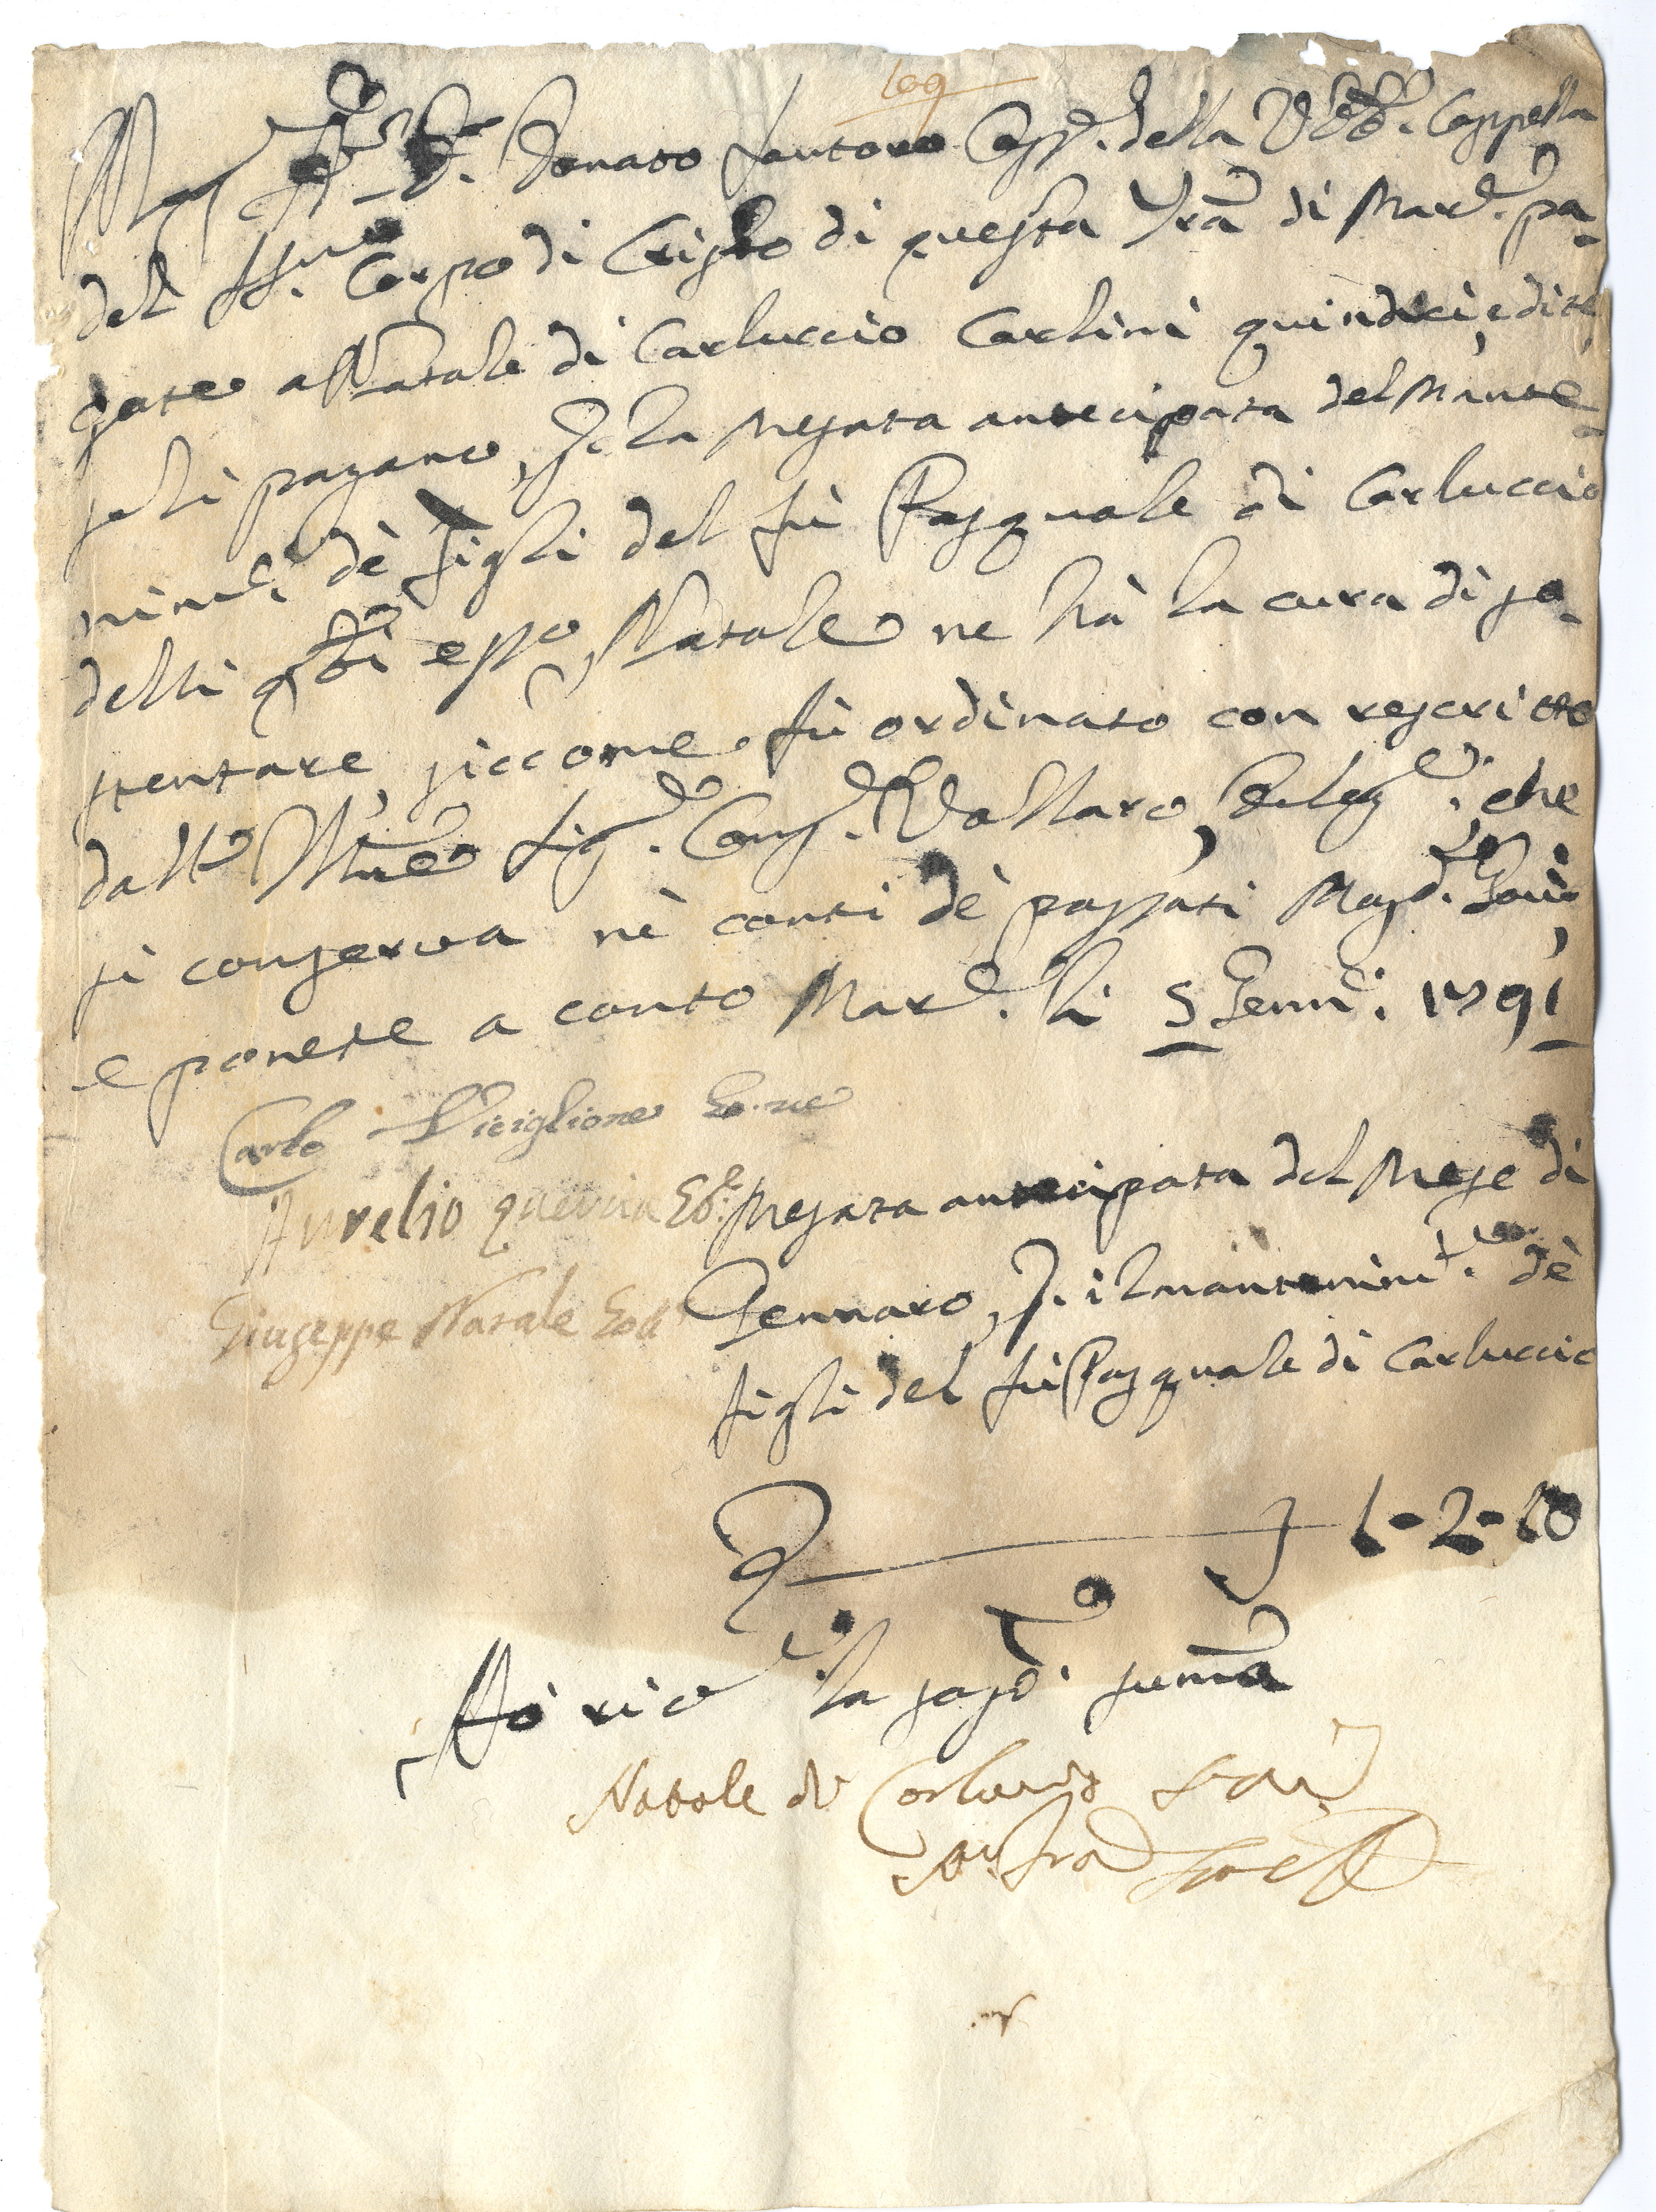 109
Mag.co D. Donato Santoro Cass.e della Ve. Cappella
del SS.mo Corpo di Cristo di questa Trã di Mar.d pa-
gate a Natale di Carluccio Carlini quindici, e dice
seli pagano, p. la mesata antecipata del mante-
nim.to dè figli del fù Pasquale di Carluccio
delli q.li esso Natale ne hà la cura di so-
stentare, siccome fù ordinato con rescritto
dall' Ill.me Sig.r Cons.r Vollaro, Deleg.to, che
si conserva nè conti dè passati Mag.ci
e ponete a conto Mar.d li 5 Genn.o 1791
Carlo Viviglione
Aurelio quercia Eb.le
Giuseppe Natale
Mesata antecipata del Mese di
Gennaro, p. il mantenim.to dè
figli del fù Pasquale di Carluccio
D 1-2-10
Hò ric.to la sud.a summa
Natale di Carluccio